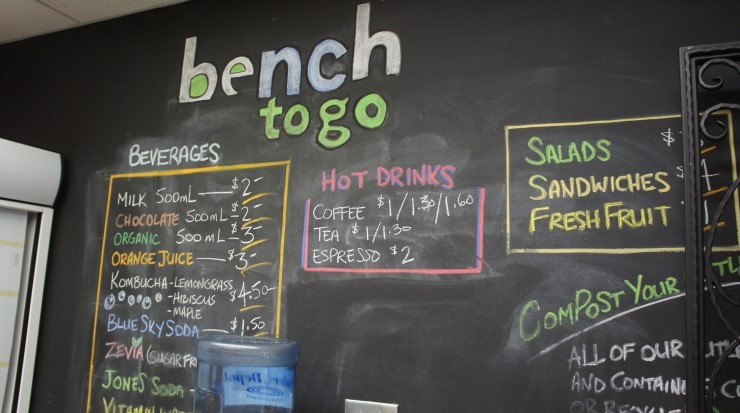 bench
to go
BEVERAGES
MILK 500mL — $2-
CHOCOLATE 500mL - $2-
ORGANIC 500mL - $3-
ORANGE JUICE — $3-
KOMBUCHA - LEMONGRASS
- HIBISCUS $4.50-
- MAPLE
BLUE SKY SODA — $1.50
ZEVIA (SUGAR FR
JONES SODA -
HOT DRINKS
COFFEE $1/1.30/1.60
TEA $1/1.30
ESPRESSO $2
SALADS $
SANDWICHES
FRESH FRUIT
COMPOST YOUR
ALL OF OUR
AND CONTAINE